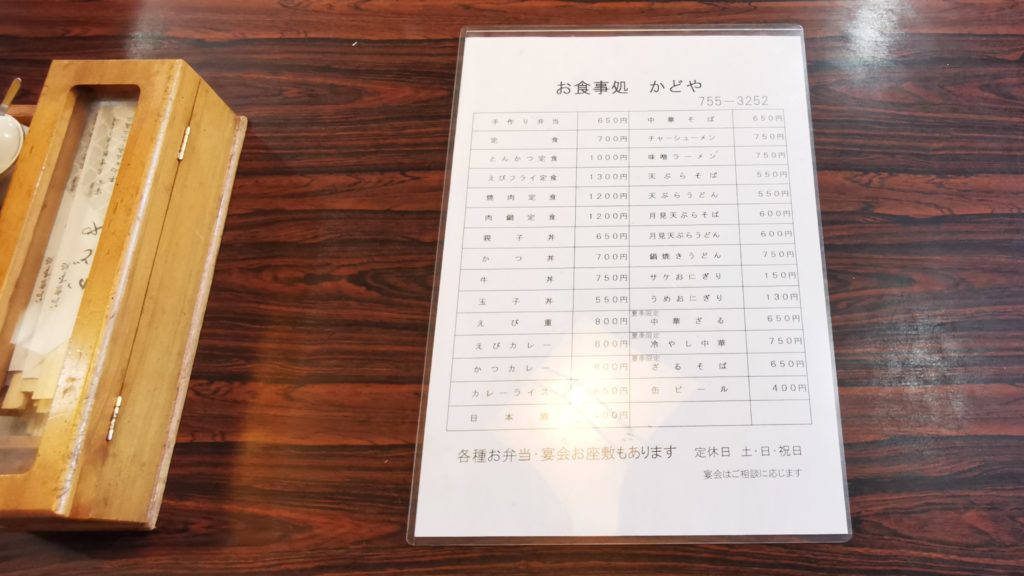 お食事処 かどや
755-3252
手作り弁当 650円 中華そば 650円
定食 700円 チャーシューメン 750円
とんかつ定食 1000円 味噌ラーメン 750円
えびフライ定食 1300円 天ぷらそば 550円
焼肉定食 1200円 天ぷらうどん 550円
肉鍋定食 1200円 月見天ぷらそば 600円
親子丼 650円 月見天ぷらうどん 600円
かつ丼 700円 鍋焼きうどん 750円
牛丼 750円 サケおにぎり 150円
玉子丼 550円 うめおにぎり 130円
えび重 800円 夏季限定 中華ざる 650円
えびカレー 800円 夏季限定 冷やし中華 750円
かつカレー 800円 夏季限定 ざるそば 650円
カレーライス 缶ビール 400円
日本酒
各種お弁当・宴会お座敷もあります 定休日 土・日・祝日
宴会はご相談に応じます